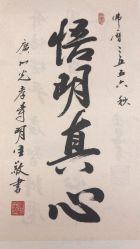 佛曆二五五六秋
悟明真心
廣州光孝寺明生敬書